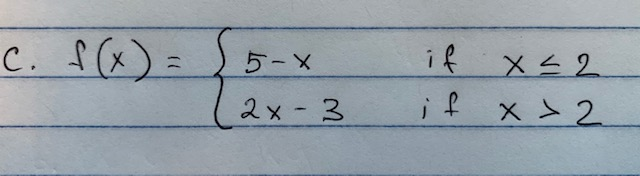 C. f(x) = { 5-x if x ≤ 2
2x - 3 if x > 2